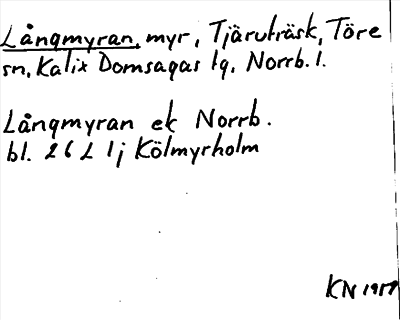 Långmyran, myr, Tjäruträsk, Töre
sn, Kalix Domsagas tg, Norrb. l.
Långmyran ek Norrb.
bl. 26 L 1j Kölmyrholm
KN